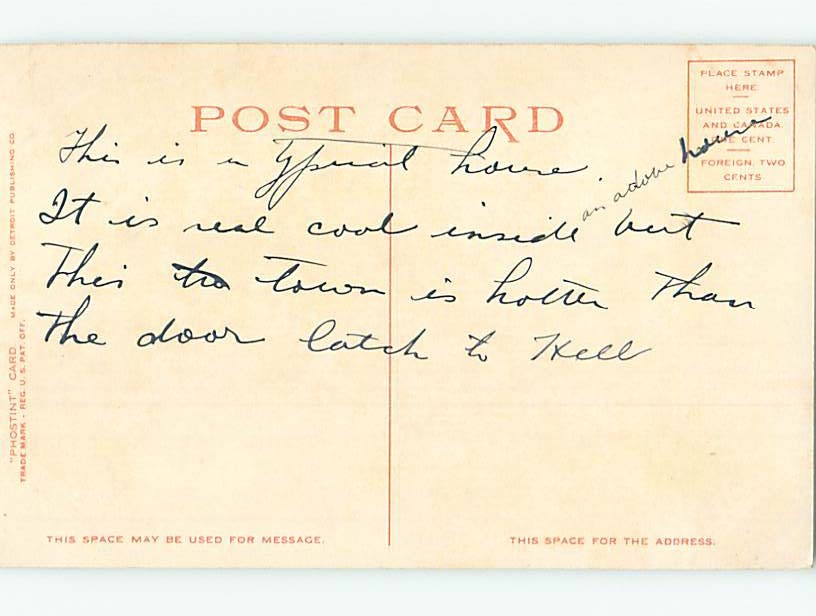 POST CARD
PLACE STAMP
HERE
UNITED STATES
AND CANADA
ONE CENT
FOREIGN, TWO
CENTS
This is a typical house.
an adobe house
It is real cool inside but
This the town is hotter Than
The door latch to Hell
"PHOSTINT" CARD MADE ONLY BY DETROIT PUBLISHING CO.
TRADE MARK - REG. U. S. PAT. OFF.
THIS SPACE MAY BE USED FOR MESSAGE.
THIS SPACE FOR THE ADDRESS.